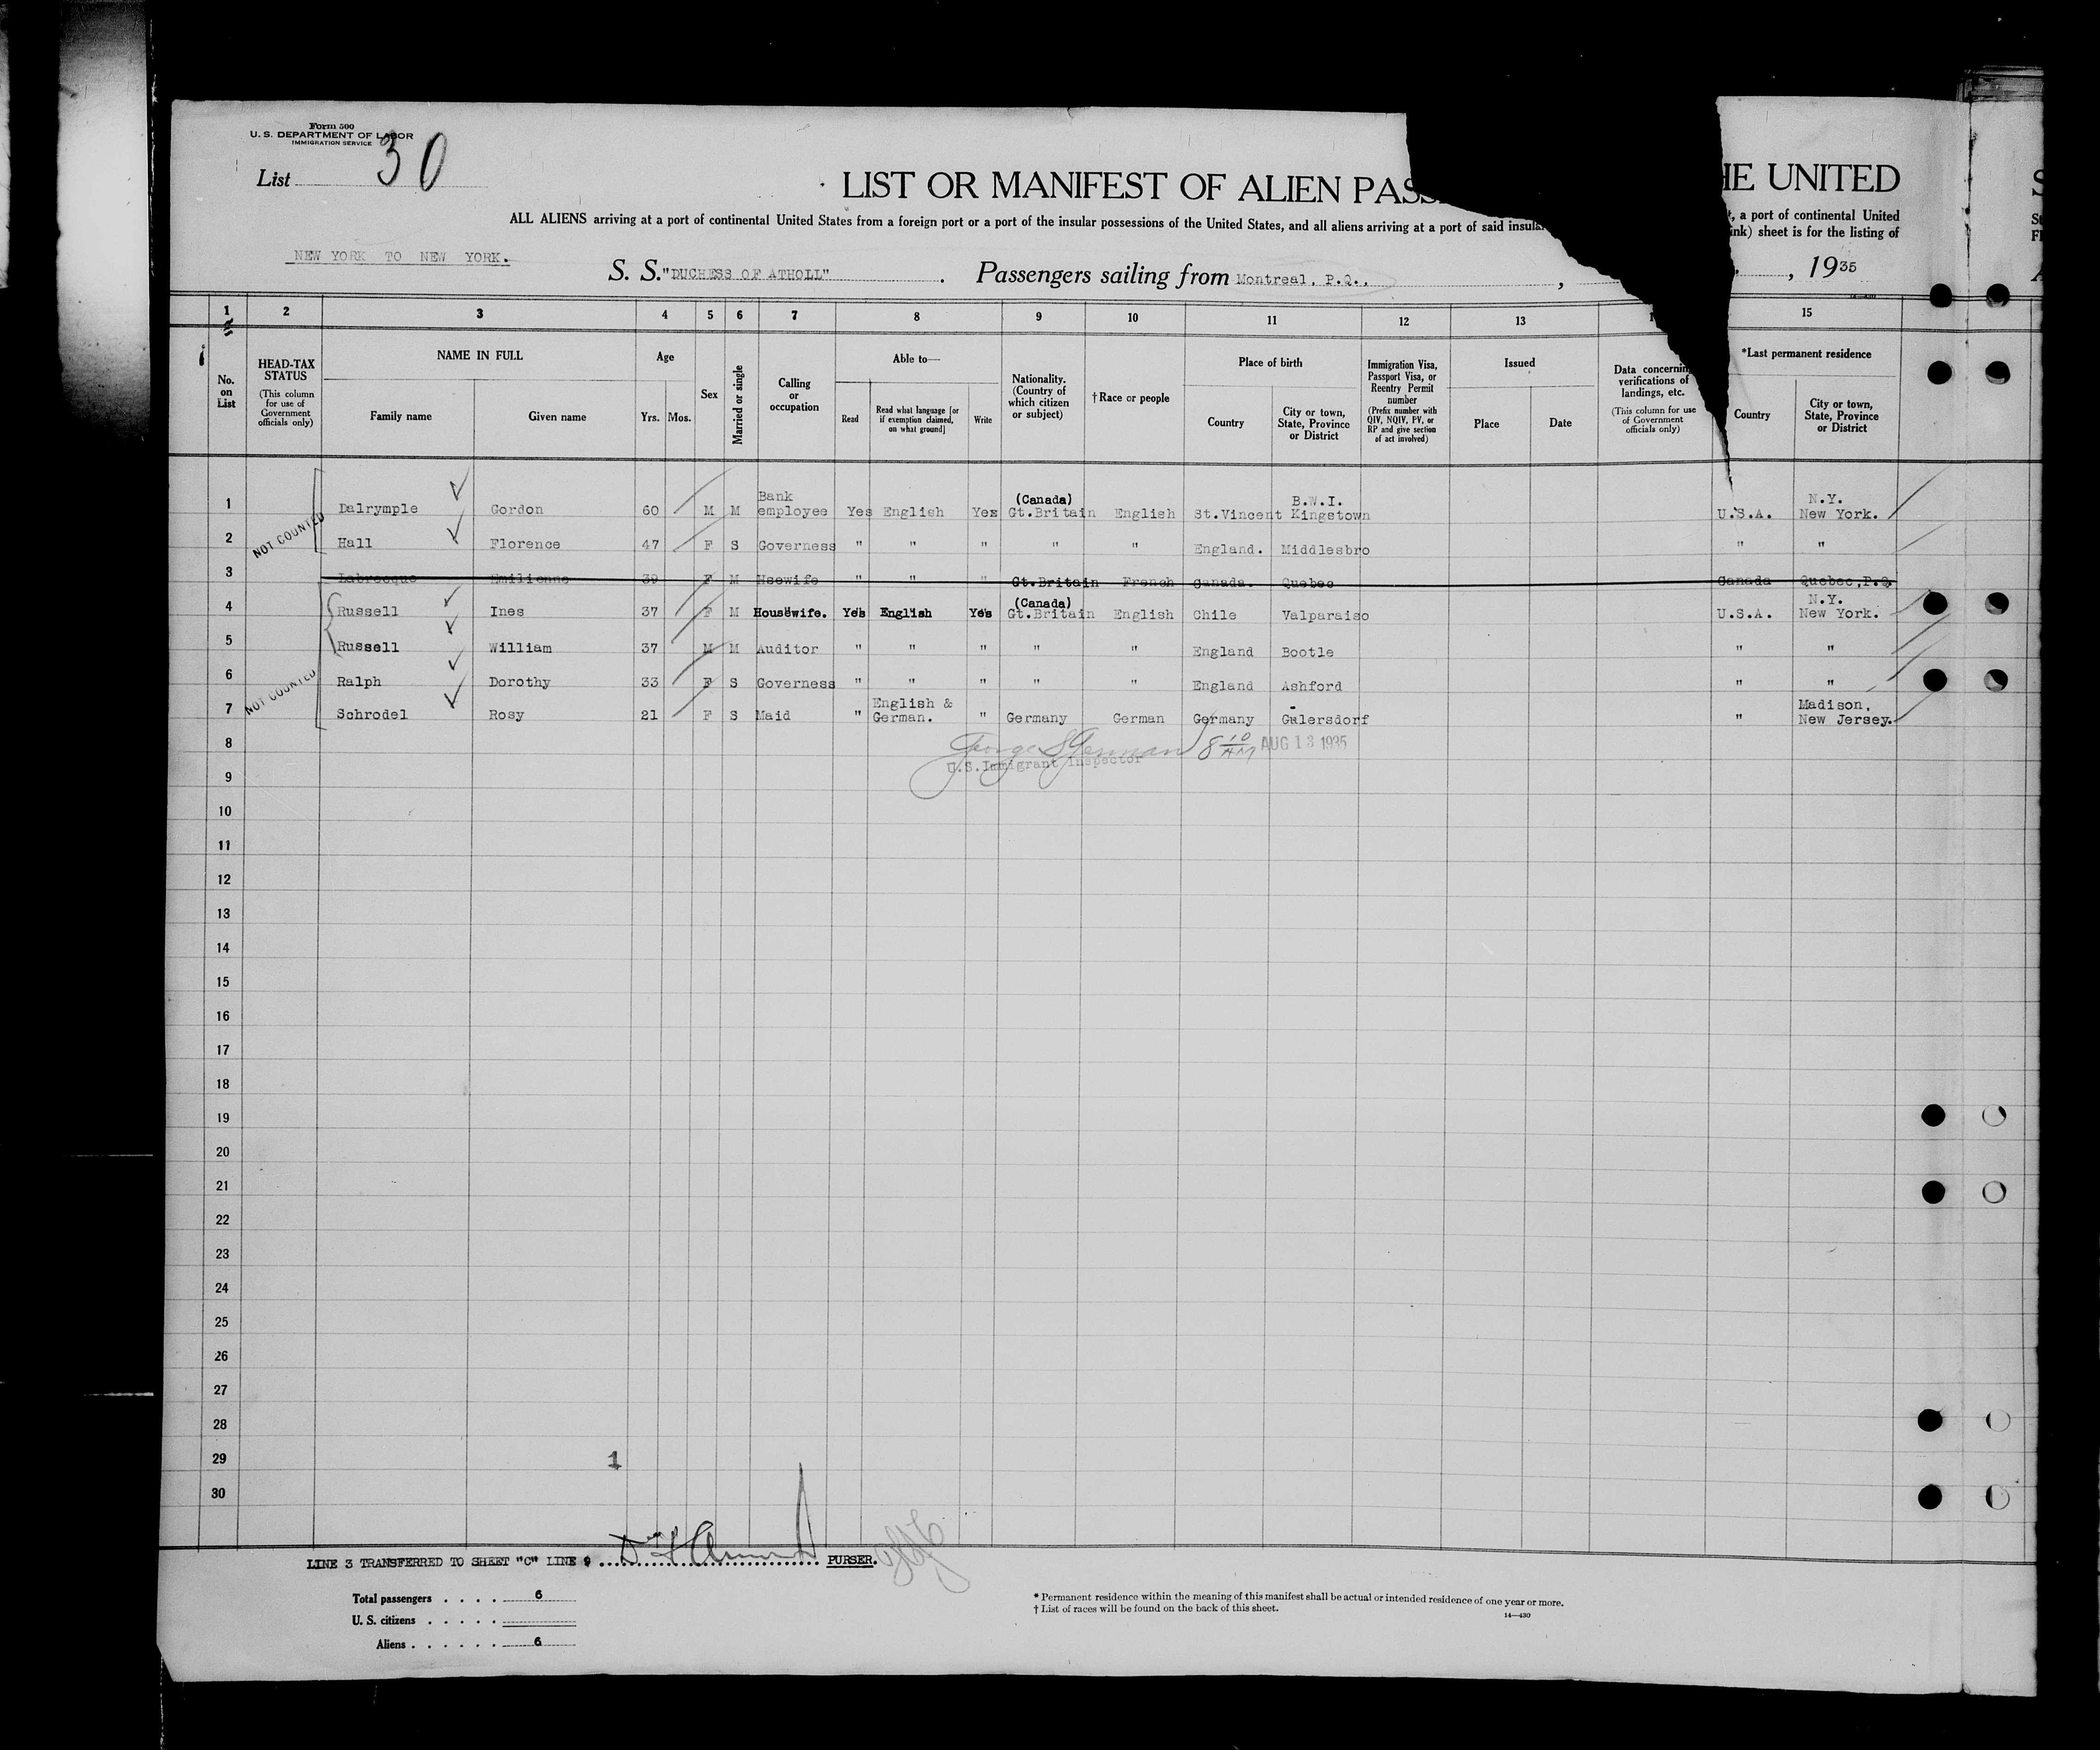 Form 500
U. S. DEPARTMENT OF LABOR
IMMIGRATION SERVICE
List 30
LIST OR MANIFEST OF ALIEN PAS HE UNITED
ALL ALIENS arriving at a port of continental United States from a foreign port or a port of the insular possessions of the United States, and all aliens arriving at a port of said insular , a port of continental United
nk) sheet is for the listing of
NEW YORK TO NEW YORK.
S. S. "DUCHESS OF ATHOLL" . Passengers sailing from Montreal, P.Q., , , 1935
1 2 3 4 5 6 7 8 9 10 11 12 13 15
No. on List
HEAD-TAX STATUS (This column for use of Government officials only)
NAME IN FULL
Family name Given name
Age
Yrs. Mos.
Sex
Married or single
Calling or occupation
Able to—
Read
Read what language [or if exemption claimed, on what ground]
Write
Nationality. (Country of which citizen or subject)
† Race or people
Place of birth
Country
City or town, State, Province or District
Immigration Visa, Passport Visa, or Reentry Permit number (Prefix number with QIV, NQIV, PV, or RP and give section of act involved)
Issued
Place Date
Data concerning verifications of landings, etc. (This column for use of Government officials only)
*Last permanent residence
Country
City or town, State, Province or District
NOT COUNTED
1 Dalrymple Gordon 60 M M Bank employee Yes English Yes (Canada) Gt.Britain English St.Vincent B.W.I. Kingstown U.S.A. N.Y. New York.
2 Hall Florence 47 F S Governess " " " " " England. Middlesbro " "
3 Labrecque Emilienne 39 F M Hsewife " " " Gt.Britain French Canada. Quebec Canada Quebec,P.Q.
4 Russell Ines 37 F M Housewife. Yes English Yes (Canada) Gt.Britain English Chile Valparaiso U.S.A. N.Y. New York.
5 Russell William 37 M M Auditor " " " " " England Bootle " "
6 Ralph Dorothy 33 F S Governess " " " " " England Ashford " "
NOT COUNTED
7 Schrodel Rosy 21 F S Maid " English & German. " Germany German Germany Gulersdorf " Madison, New Jersey.
8 AUG 13 1935
U.S.Immigrant Inspector
9
10
11
12
13
14
15
16
17
18
19
20
21
22
23
24
25
26
27
28
29 1
30
LINE 3 TRANSFERRED TO SHEET "C" LINE 9 PURSER.
Total passengers . . . . 6
U. S. citizens . . . . .
Aliens . . . . . . 6
* Permanent residence within the meaning of this manifest shall be actual or intended residence of one year or more.
† List of races will be found on the back of this sheet.
14—430